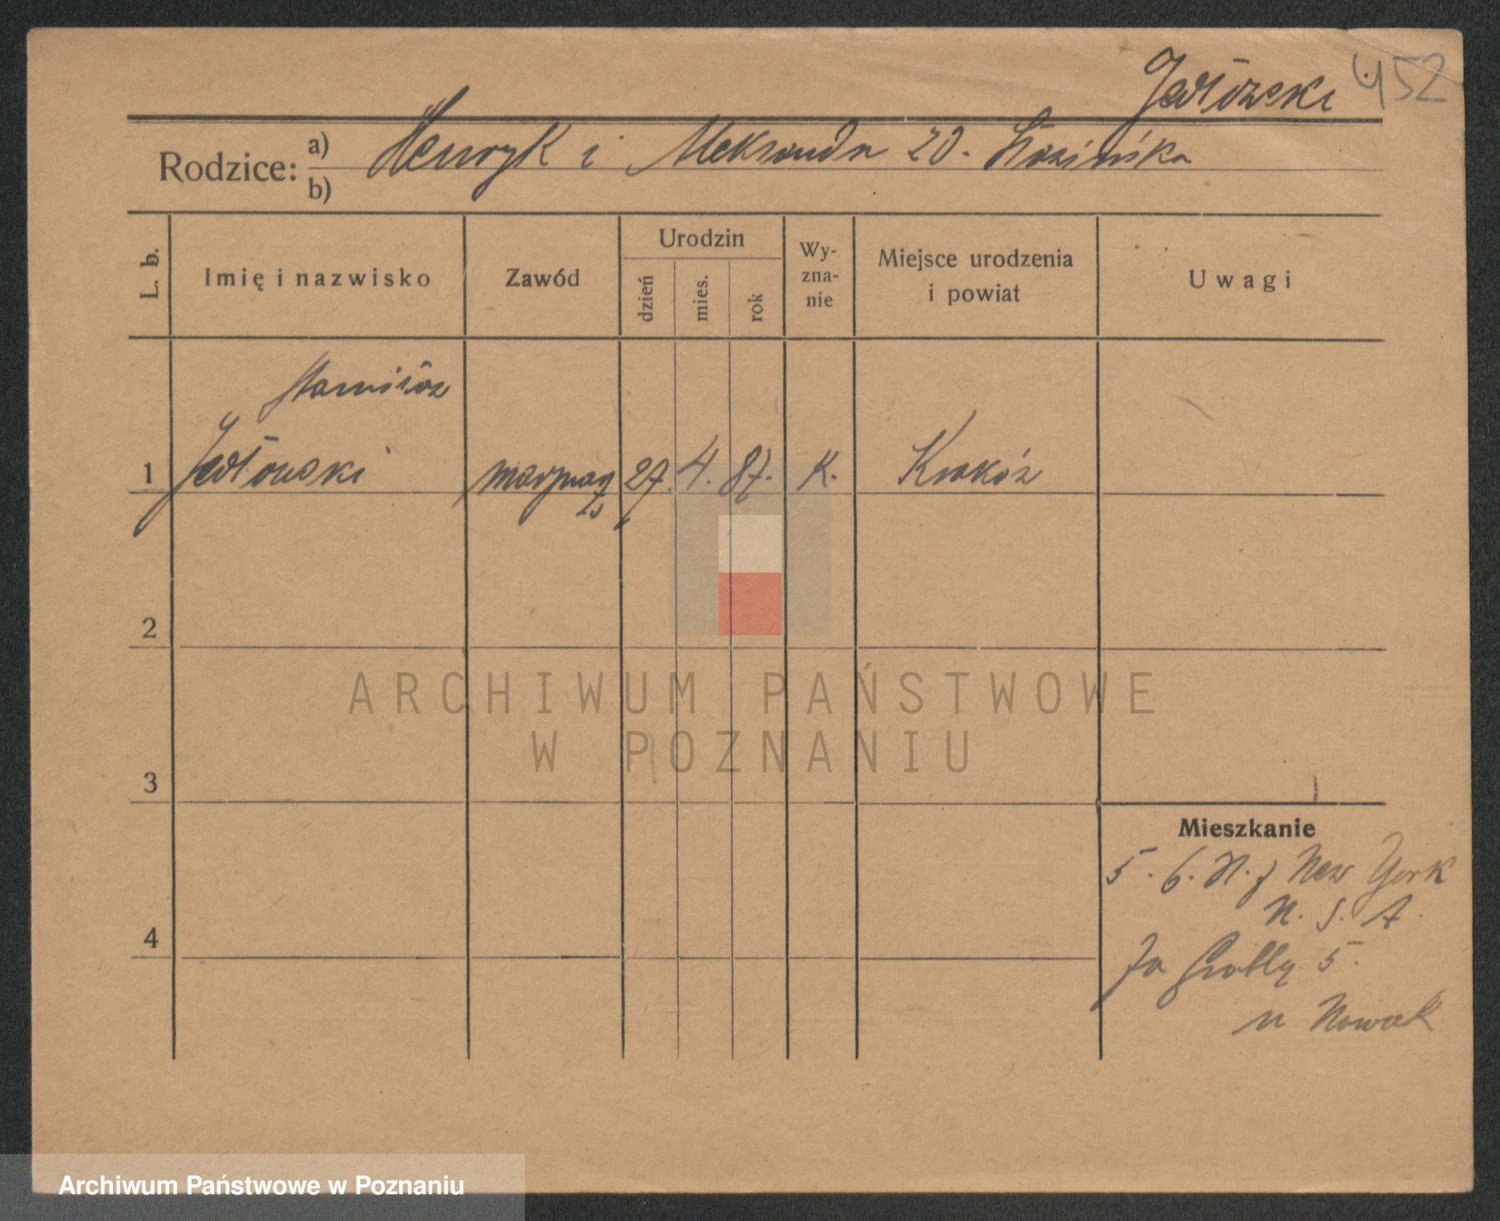 Jedłowski 452
Rodzice: a) Henryk i Aleksandra zd. Łozińska
b)
L. b.
Imię i nazwisko
Zawód
Urodzin
dzień
mies.
rok
Wy-
zna-
nie
Miejsce urodzenia
i powiat
Uwagi
Stanisław
1 Jedłowski 27. 4. 87. K. Kraków
2
3
4
Mieszkanie
5. 6. New York
Za Groblą 5.
u Nowak
ARCHIWUM PAŃSTWOWE
W POZNANIU
Archiwum Państwowe w Poznaniu